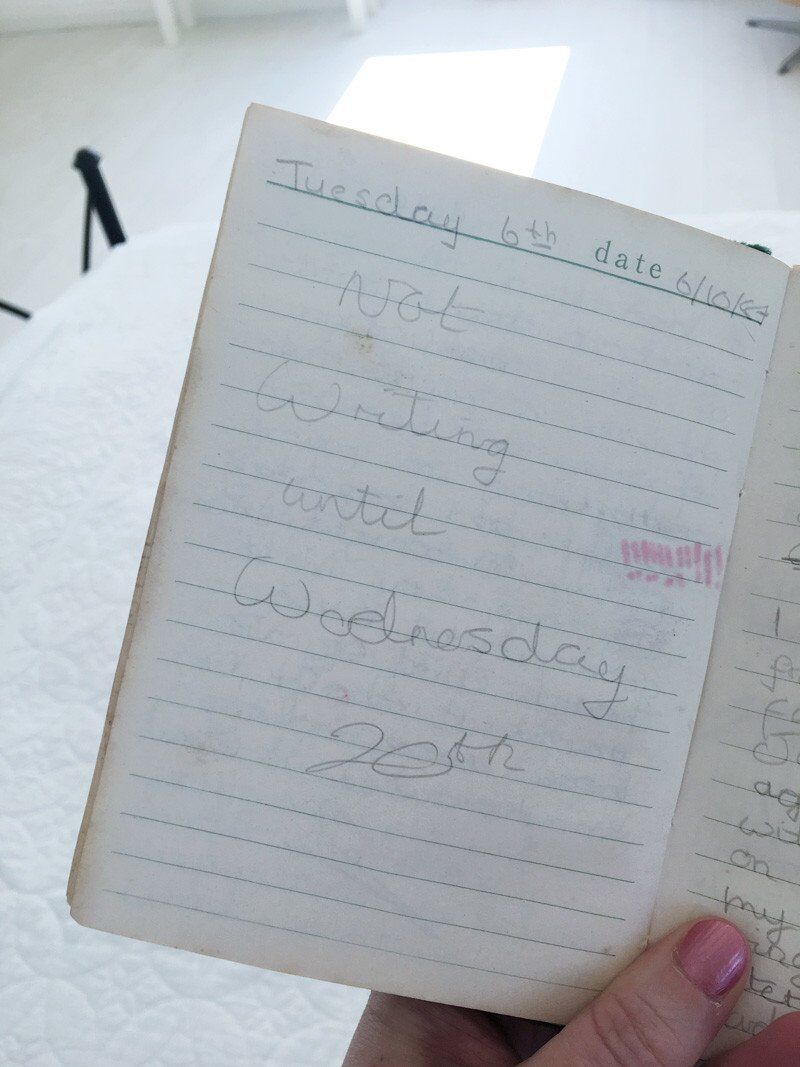 Tuesday 6th date 6/10/87
Not
Writing
until
Wednesday
20th
I
ag
on
my